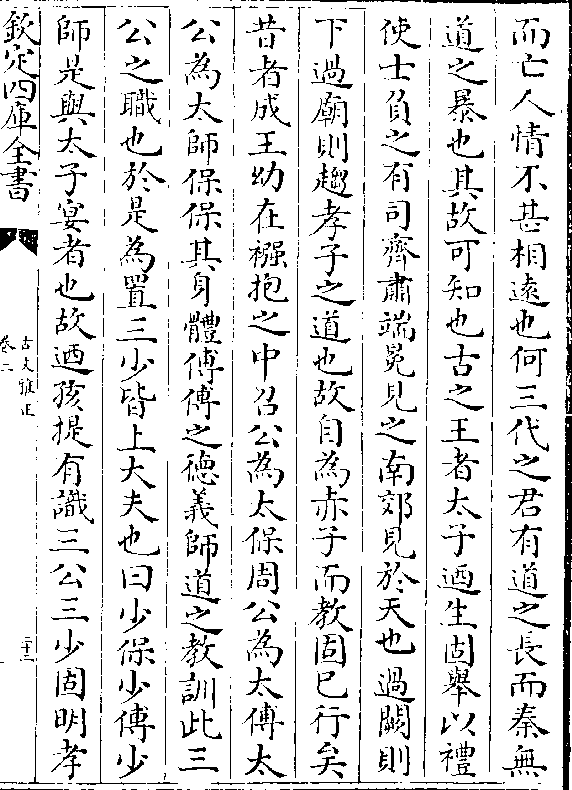 而亡人情不甚相遠也何三代之君有道之長而秦無
道之暴也其故可知也古之王者太子迺生固舉以禮
使士負之有司齊肅端冕見之南郊見於天也過闕則
下過廟則趨孝子之道也故自為赤子而教固已行矣
昔者成王幼在襁抱之中召公為太保周公為太傅太
公為太師保保其身體傅傅之德義師道之教訓此三
公之職也於是為置三少皆上大夫也曰少保少傅少
師是與太子宴者也故迺孩提有識三公三少固明孝
欽定四庫全書
古文雅正
卷二
二十三